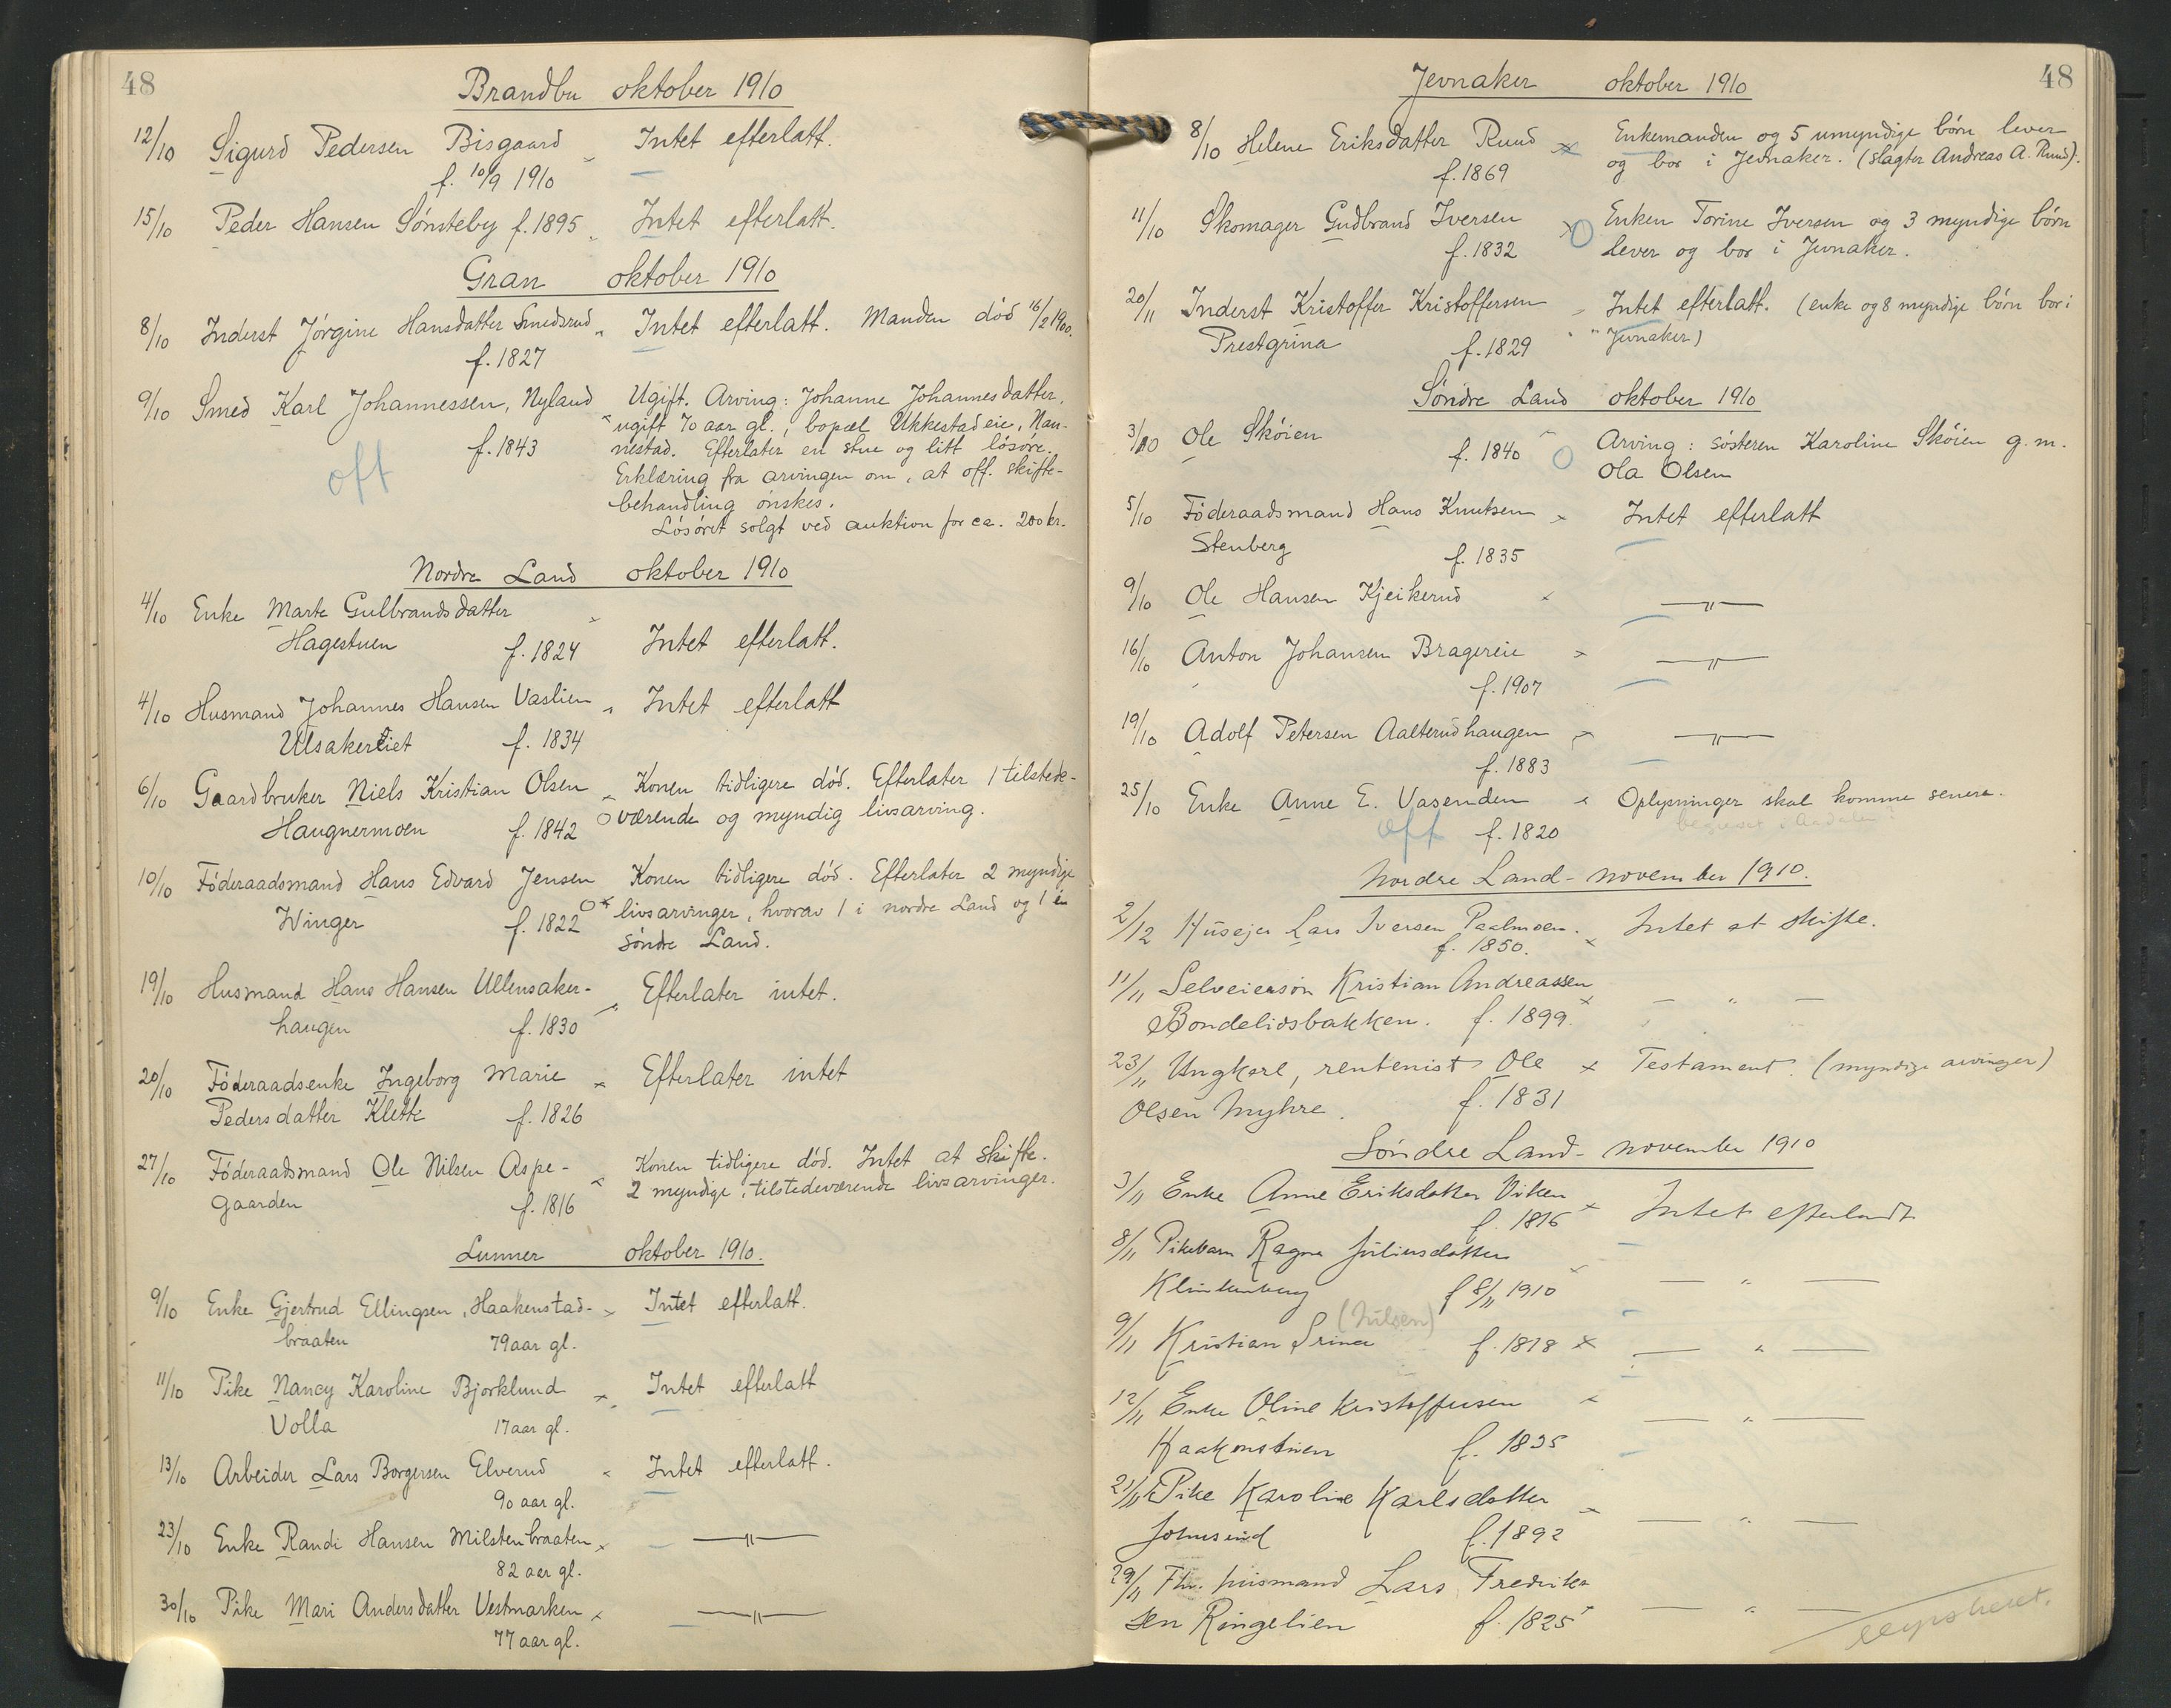 48
Brandbu oktober 1910
12/10 Sigurd Pedersen Bisgaard Intet efterlatt.
f. 10/9 1910
15/10 Peder Hansen Sønsteby f. 1895 Intet efterlatt.
Gran oktober 1910
8/10 Inderst Jørgine Hansdatter Smedsrud Intet efterlatt. Manden død 16/2 1900.
f. 1827
9/10 Smed Karl Johannessen, Nyland Ugift. Arving: Johanne Johannesdatter,
ugift 70 aar gl., bopæl Ukkestadeie, Nan-
f. 1843 nestad. Efterlater en stue og litt løsøre.
oft Erklæring fra arvingen om, at off. skifte-
behandling ønskes.
Løsøret solgt ved auktion for ca. 200 kr.
Nordre Land oktober 1910
4/10 Enke Marte Gulbrandsdatter
Hagestuen f. 1824 Intet efterlatt.
4/10 Husmand Johannes Hansen Vaslien Intet efterlatt
Ulsakereiet f. 1834
6/10 Gaardbruker Niels Kristian Olsen Konen tidligere død. Efterlater 1 tilstede-
Haugnermoen f. 1842 værende og myndig livsarving.
10/10 Føderaadsmand Hans Edvard Jensen Konen tidligere død. Efterlater 2 myndige
Winger f. 1822 livsarvinger, hvorav 1 i nordre Land og 1 i
søndre Land.
19/10 Husmand Hans Hansen Ullensaker- Efterlater intet.
haugen f. 1830
20/10 Føderaadsenke Ingeborg Marie Efterlater intet
Pedersdatter Klette f. 1826
27/10 Føderaadsmand Ole Nilsen Aspe- Konen tidligere død. Intet at skifte.
gaarden f. 1816 2 myndige, tilstedeværende livsarvinger.
Lunner oktober 1910.
9/10 Enke Gjertrud Ellingsen, Haakenstad- Intet efterlatt.
braaten 79 aar gl.
11/10 Pike Nancy Karoline Bjorklund Intet efterlatt
Volla 17 aar gl.
13/10 Arbeider Lars Borgersen Elverud Intet efterlatt.
90 aar gl.
23/10 Enke Randi Hansen Milstenbraaten —"—
82 aar gl.
30/10 Pike Mari Andersdatter Vestmarken —"—
77 aar gl.
48
Jevnaker oktober 1910
8/10 Helene Eriksdatter Ruud Enkemanden og 5 umyndige børn lever
f. 1869 og bor i Jevnaker. (Slagter Andreas A. Ruud).
11/10 Skomager Gudbrand Iversen Enken Torine Iversen og 3 myndige børn
f. 1832 lever og bor i Jevnaker.
20/11 Inderst Kristoffer Kristoffersen Intet efterlatt. (enke og 8 myndige børn bor i
Prestgrina f. 1829 Jevnaker)
Søndre Land oktober 1910
3/10 Ole Skøien f. 1840 Arving: søsteren Karoline Skøien g. m.
Ola Olsen
5/10 Føderaadsmand Hans Knutsen Intet efterlatt
Stenberg f. 1835
9/10 Ole Hansen Kjeikerud —"—
16/10 Anton Johansen Bragereie —"—
f. 1907
19/10 Adolf Petersen Aalterudhaugen —"—
f. 1883
25/10 Enke Anne E. Vasenden Oplysninger skal komme senere.
oft f. 1820
Nordre Land - november 1910.
2/12 Husejer Lars Iversen Paalmoen. Intet at skifte.
f. 1850.
11/11 Selveiersøn Kristian Andreassen — " —
Bondelidsbakken. f. 1899.
23/11 Ungkarl, rentenist Ole Testament. (myndige arvinger)
Olsen Myhre. f. 1831
Søndre Land - november 1910
3/11 Enke Anne Eriksdatter Viken Intet efterladt
f. 1816
8/11 Pikebarn Ragna Juliusdatter
Klinkenberg f 8/11 1910 — " —
(Nilsen)
9/11 Kristian f. 1818 — " —
12/11 Enke Oline Kristoffersen — " —
Haakenstuen f. 1835
21/11 Pike Karoline Karlsdatter — " —
f. 1892
29/11 Fhv. husmand Lars Fredrik-
sen Ringelien f. 1825 — " —